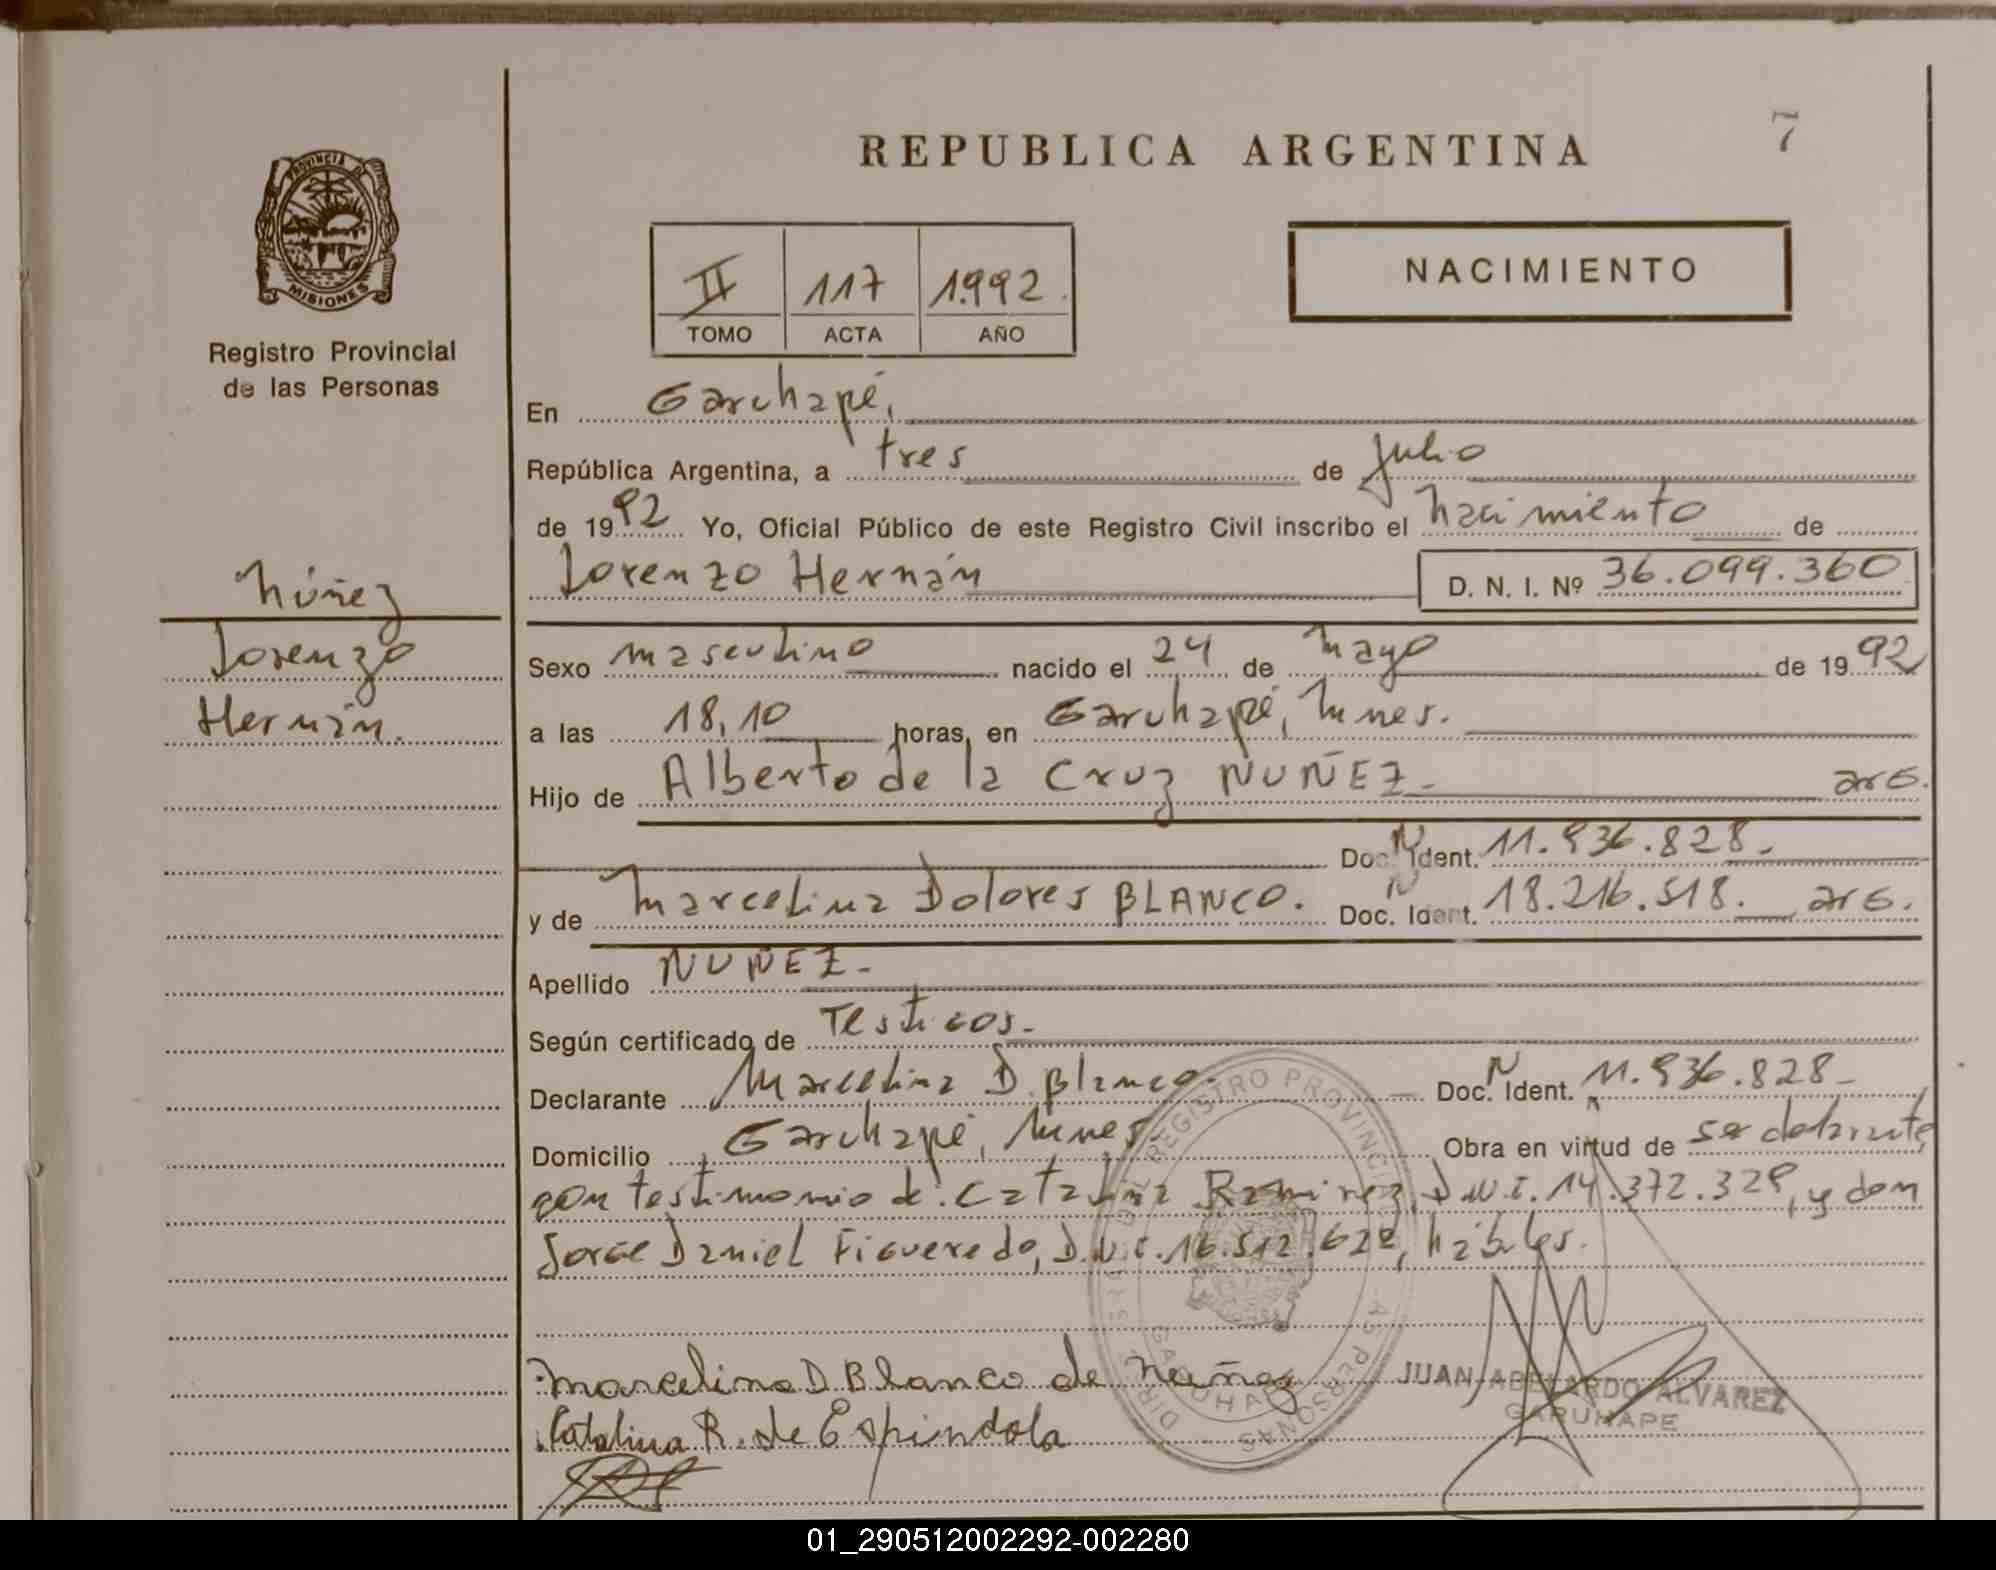 7
REPUBLICA ARGENTINA
PROVINCIA DE
MISIONES
Registro Provincial
de las Personas
II 117 1.992.
TOMO ACTA AÑO
NACIMIENTO
En Garuhapé,
República Argentina, a tres de Julio
de 1992 Yo, Oficial Público de este Registro Civil inscribo el nacimiento de
Lorenzo Hernán D. N. I. Nº 36.099.360
Núñez
Lorenzo
Hernán.
Sexo masculino nacido el 24 de mayo de 1992
a las 18,10 horas, en Garuhapé, Mnes.
Hijo de Alberto de la Cruz NUÑEZ.- arg.
Doc. Ident. 11.936.828.-
y de Marcelina Dolores BLANCO. Doc. Ident. 18.216.518. arg.
Apellido NUÑEZ.-
Según certificado de Testigos.-
Declarante Marcelina D. Blanco. Doc. Ident. 11.936.828-
Domicilio Garuhapé, Mnes. Obra en virtud de ser declarante
con testimonio de: Catalina Ramirez, D.N.I. 14.372.329, y don
Jorge Daniel Figueredo, D.N.I. 16.512.622, hábiles.
DIR REGISTRO PROVINCIAL AS PERSONAS
GARUHAPE
Marcelina D Blanco de Nuñez
Catalina R. de Espindola
JUAN ABELARDO ALVAREZ
GARUHAPE
01_290512002292-002280